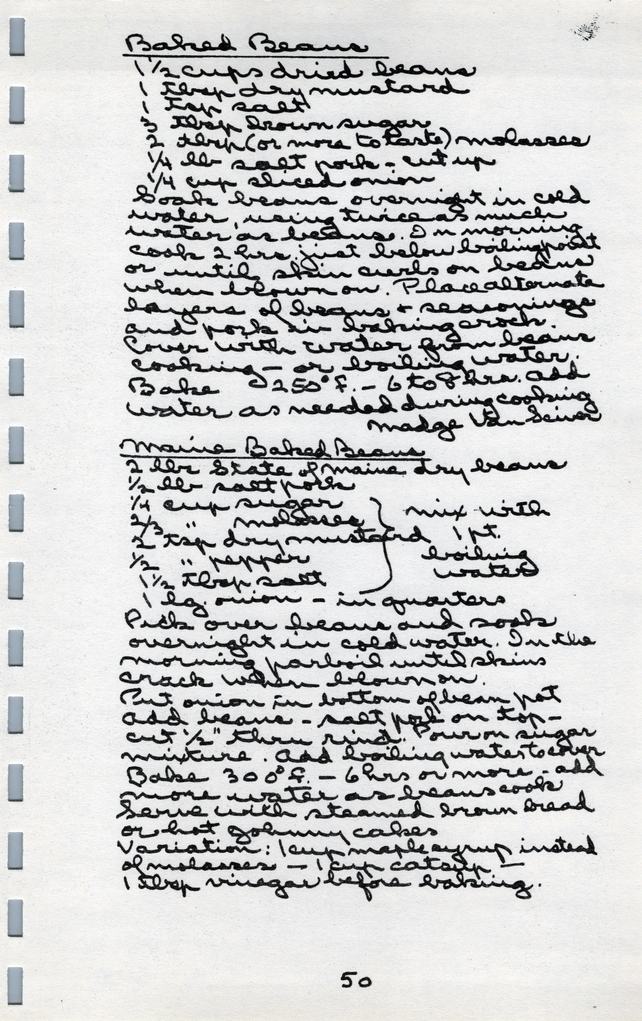 Baked Beans
1 1/2 cups dried beans
1 tbsp dry mustard
1 tsp salt
3 tbsp brown sugar
2 tbsp (or more to taste) molasses
1/4 lb salt pork - cut up
1/4 cup sliced onion
Soak beans overnight in cold
water, using twice as much
water as beans. In morning
cook 2 hrs. just below boiling point
or until skin curls on beans
when blown on. Place alternate
layers of beans + seasonings
and pork in baking crock.
Cover with water from beans
cooking - or boiling water.
Bake 250° f. - 6 to 8 hrs. add
water as needed during cooking
Madge Van
Maine Baked Beans
2 lbs State of Maine dry beans
1/2 lb salt pork
1/4 cup sugar
2/3 " molasses
2 tsp dry mustard
1/2 " pepper
1 1/2 tbsp salt
mix with
1 pt.
boiling
water
1 lg. onion - in quarters
Pick over beans and soak
overnight in cold water. In the
morning parboil until skins
crack when blown on.
Put onion in bottom of bean pot
add beans - salt pork on top -
cut 1/2" thru rind. Pour on sugar
mixture. Add boiling water to cover
Bake 300° f. - 6 hrs or more - add
more water as beans cook
Serve with steamed brown bread
or hot Johnny cakes
Variation: 1 cup maple syrup instead
of molasses - 1 cup catsup -
1 tbsp vinegar before baking.
50